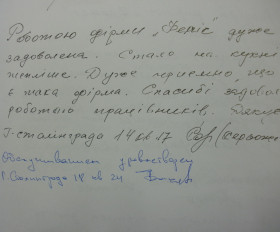 Роботою фірми „Фенікс" дуже
задоволена. Стало на кухні
тепліше. Дуже приємно, що
є така фірма. Спасибі
роботою працівників. Дякую
Г-Сталинграда 14 кв 17
Обслуживанием
Г. Сталинграда 18 кв 24